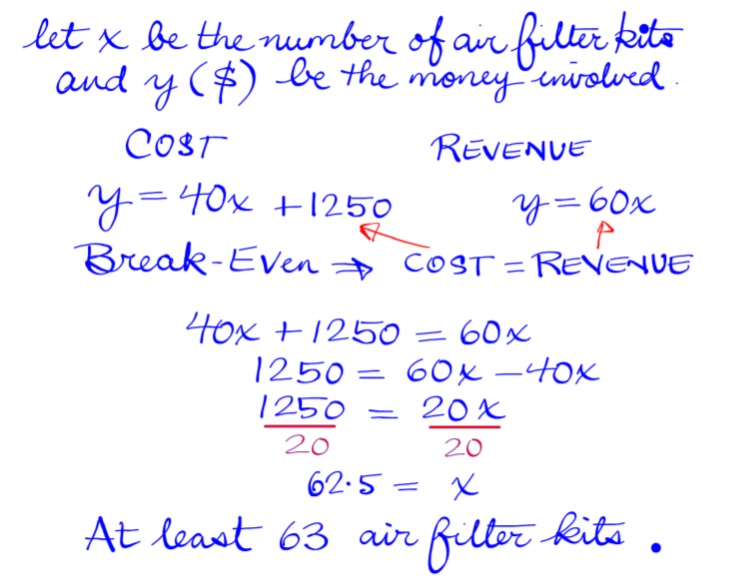 let x be the number of air filter kits
and y ($) be the money involved.
COST REVENUE
y = 40x + 1250 y = 60x
Break-Even ⇒ COST = REVENUE
40x + 1250 = 60x
1250 = 60x - 40x
1250 = 20x
20 20
62.5 = x
At least 63 air filter kits.